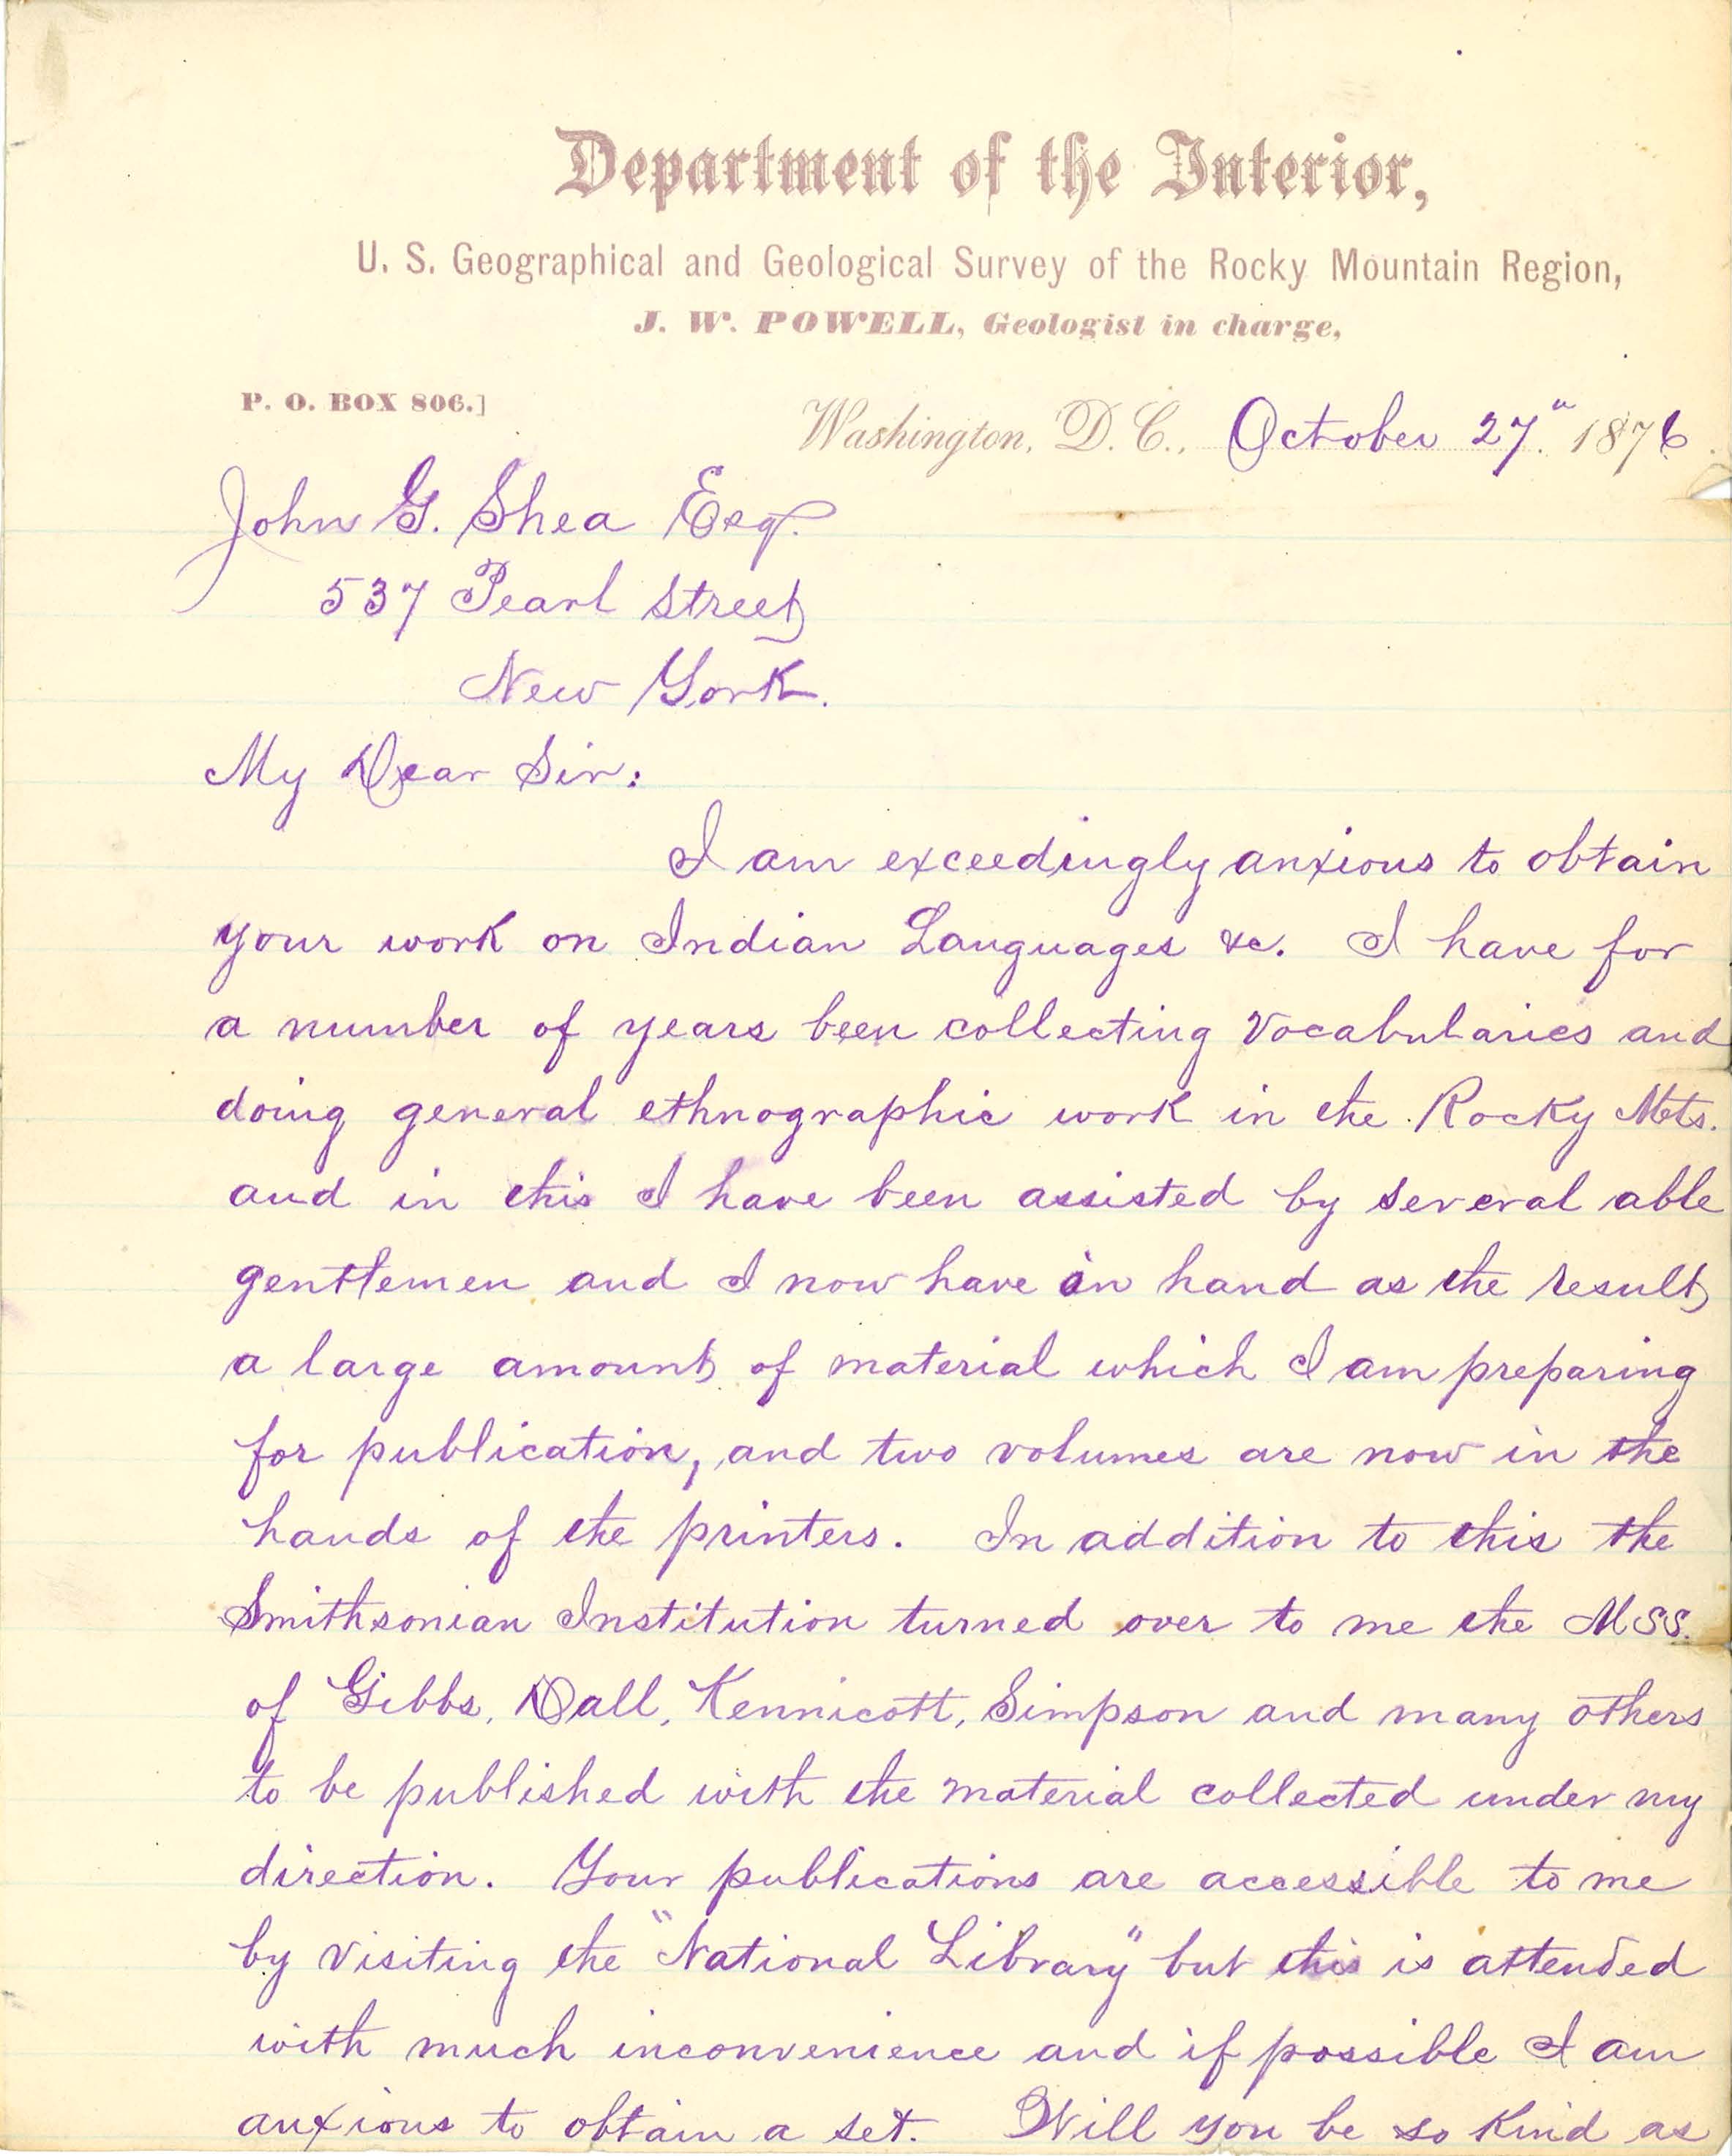 Department of the Interior,
U. S. Geographical and Geological Survey of the Rocky Mountain Region,
J. W. POWELL, Geologist in charge,
P. O. BOX 806.]
Washington, D. C., October 27." 1876.
John G. Shea Esq.
537 Pearl Street
New York.
My Dear Sir:
I am exceedingly anxious to obtain
your work on Indian Languages &c. I have for
a number of years been collecting Vocabularies and
doing general ethnographic work in the Rocky Mts.
and in this I have been assisted by several able
gentlemen and I now have in hand as the result
a large amount of material which I am preparing
for publication, and two volumes are now in the
hands of the printers. In addition to this the
Smithsonian Institution turned over to me the MSS.
of Gibbs, Dall, Kennicott, Simpson and many others
to be published with the material collected under my
direction. Your publications are accessible to me
by visiting the "National Library" but this is attended
with much inconvenience and if possible I am
anxious to obtain a set. Will you be so kind as